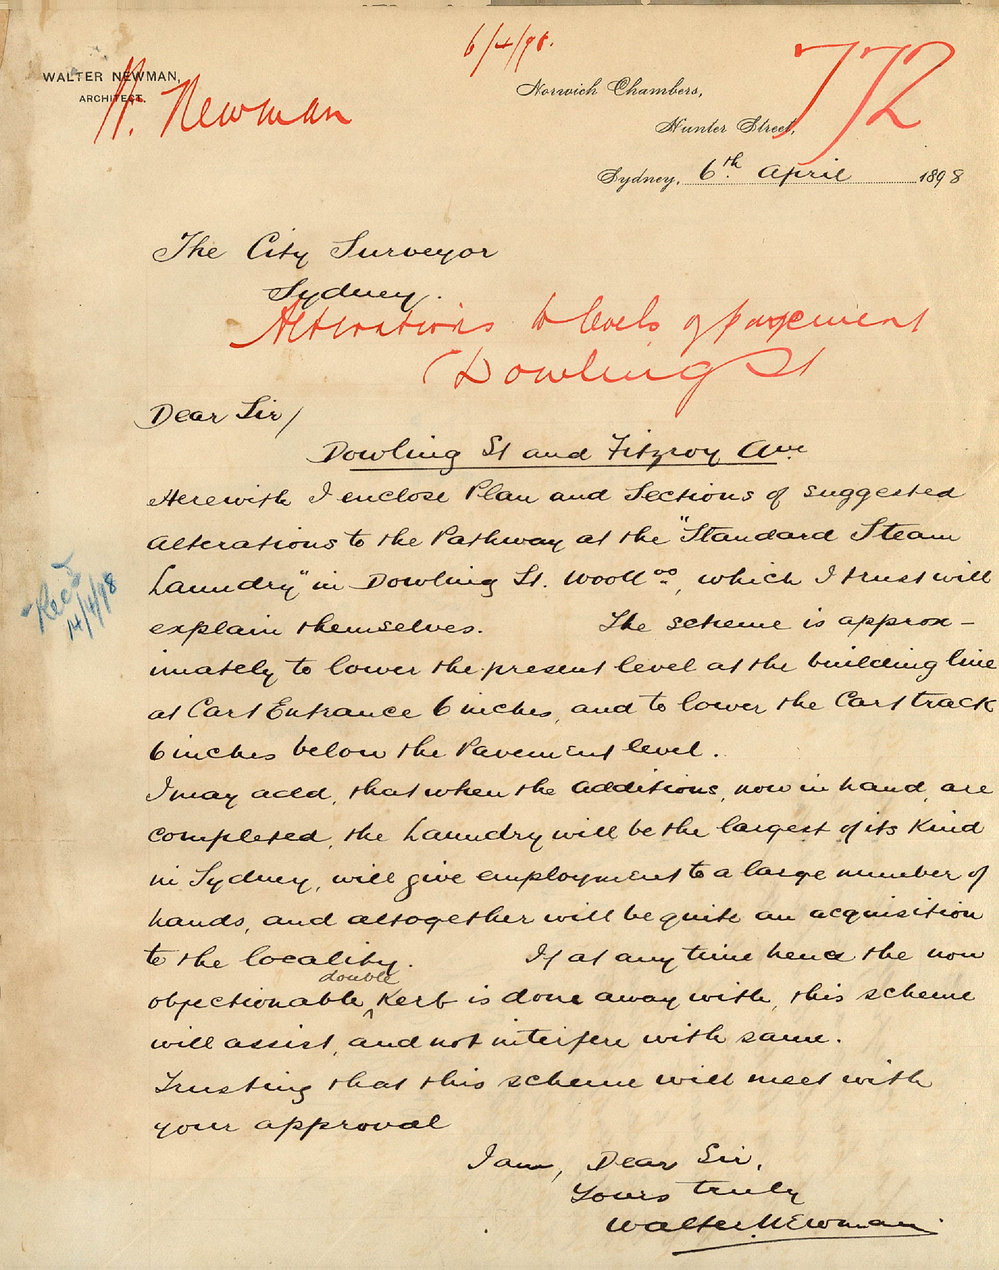 6/4/98.
WALTER NEWMAN,
ARCHITECT.
W. Newman
772
Norwich Chambers,
Hunter Street,
Sydney, 6th. April 1898
The City Surveyor
Sydney.
Alterations to levels of pavement
Dowling St
Dear Sir/
Dowling St and Fitzroy Ave
Herewith I enclose Plan and Sections of suggested
alterations to the Pathway at the "Standard Steam
Laundry" in Dowling St. Woolloo, which I trust will
explain themselves. The scheme is approx-
imately to lower the present level at the building line
at Cart Entrance 6 inches, and to lower the Cart track
6 inches below the Pavement level.
I may add, that when the additions, now in hand, are
completed, the Laundry will be the largest of its Kind
in Sydney, will give employment to a large number of
hands, and altogether will be quite an acquisition
to the locality. If at any time hence the now
objectionable double Kerb is done away with, this scheme
will assist, and not interfere with same.
Trusting that this scheme will meet with
your approval
I am, Dear Sir,
Yours truly
Walter Newman.
Recd
14/4/98